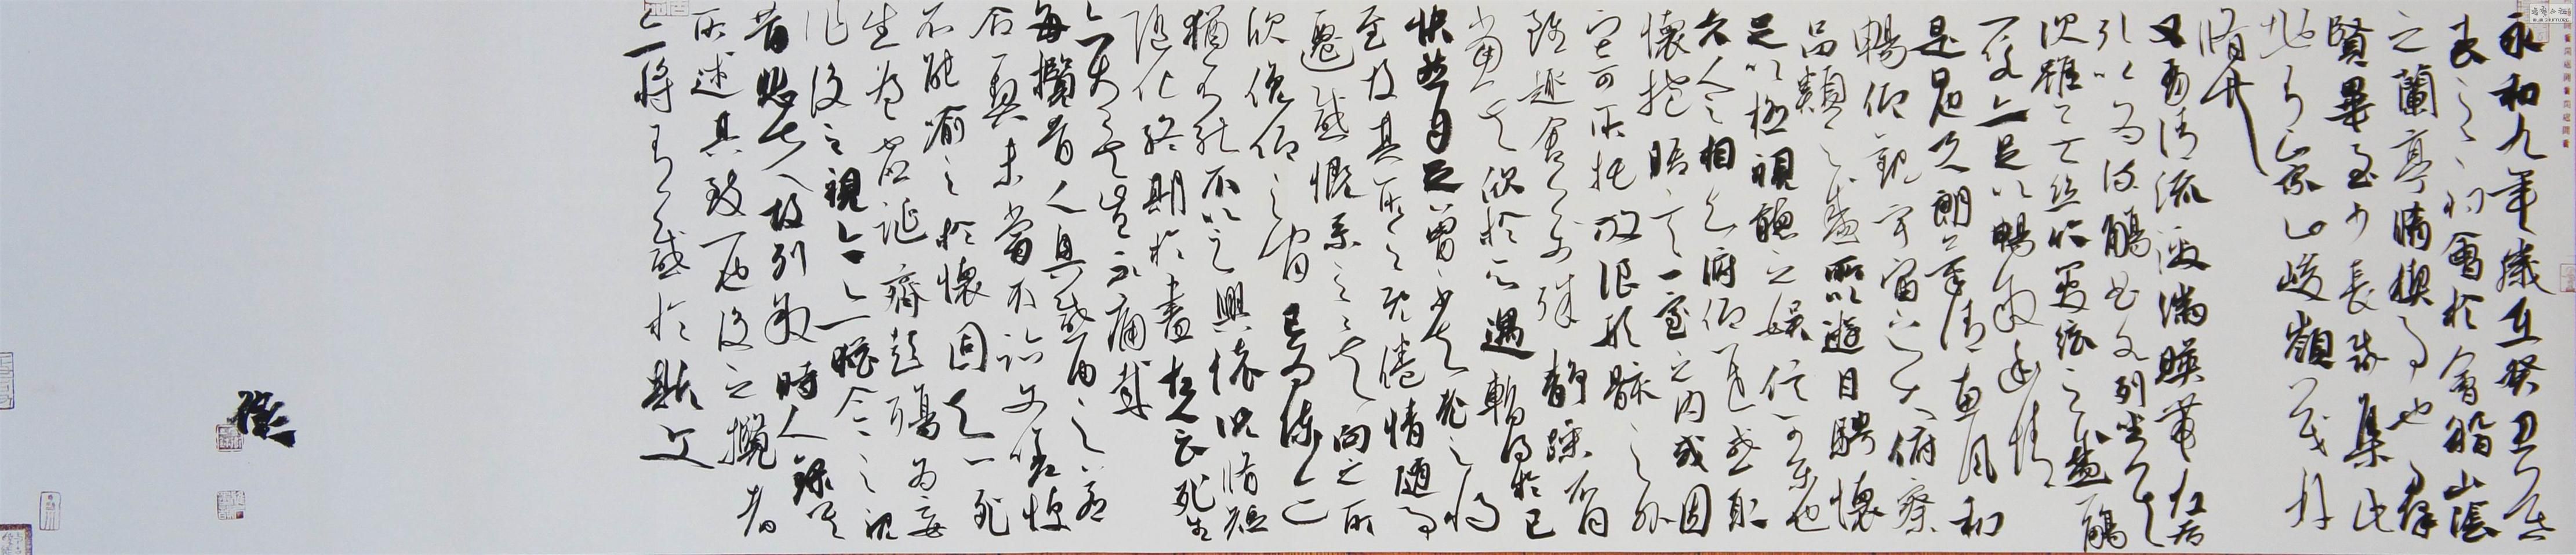 永和九年歲在癸丑暮
春之初會於會稽山陰
之蘭亭脩禊事也羣
賢畢至少長咸集此
地有崇山峻嶺茂林
脩竹
又有清流激湍暎帶左右
引以為流觴曲水列坐其
次雖無絲竹管弦之盛一觴
一詠亦足以暢敘幽情
是日也天朗氣清惠風和
暢仰觀宇宙之大俯察
品類之盛所以遊目騁懷
足以極視聽之娛信可樂也
夫人之相與俯仰一世或取
懷抱悟言一室之內或因
寄所托放浪形骸之外
雖趣舍萬殊靜躁不同
當其欣於所遇暫得於己
快然自足曾不知老之將
至及其所之既倦情隨事
遷感慨係之矣向之所
欣俛仰之間已為陳迹
猶不能不以之興懷況脩短
隨化終期於盡古人云死生
亦大矣豈不痛哉
每攬昔人興感由之若
合一契未嘗不臨文嗟悼
不能喻之於懷固知一死
生為虛誕齊彭殤為妄
作後之視今亦由今之視
昔悲夫故列敘時人錄其
所述其致一也後之攬者
亦將有感於斯文